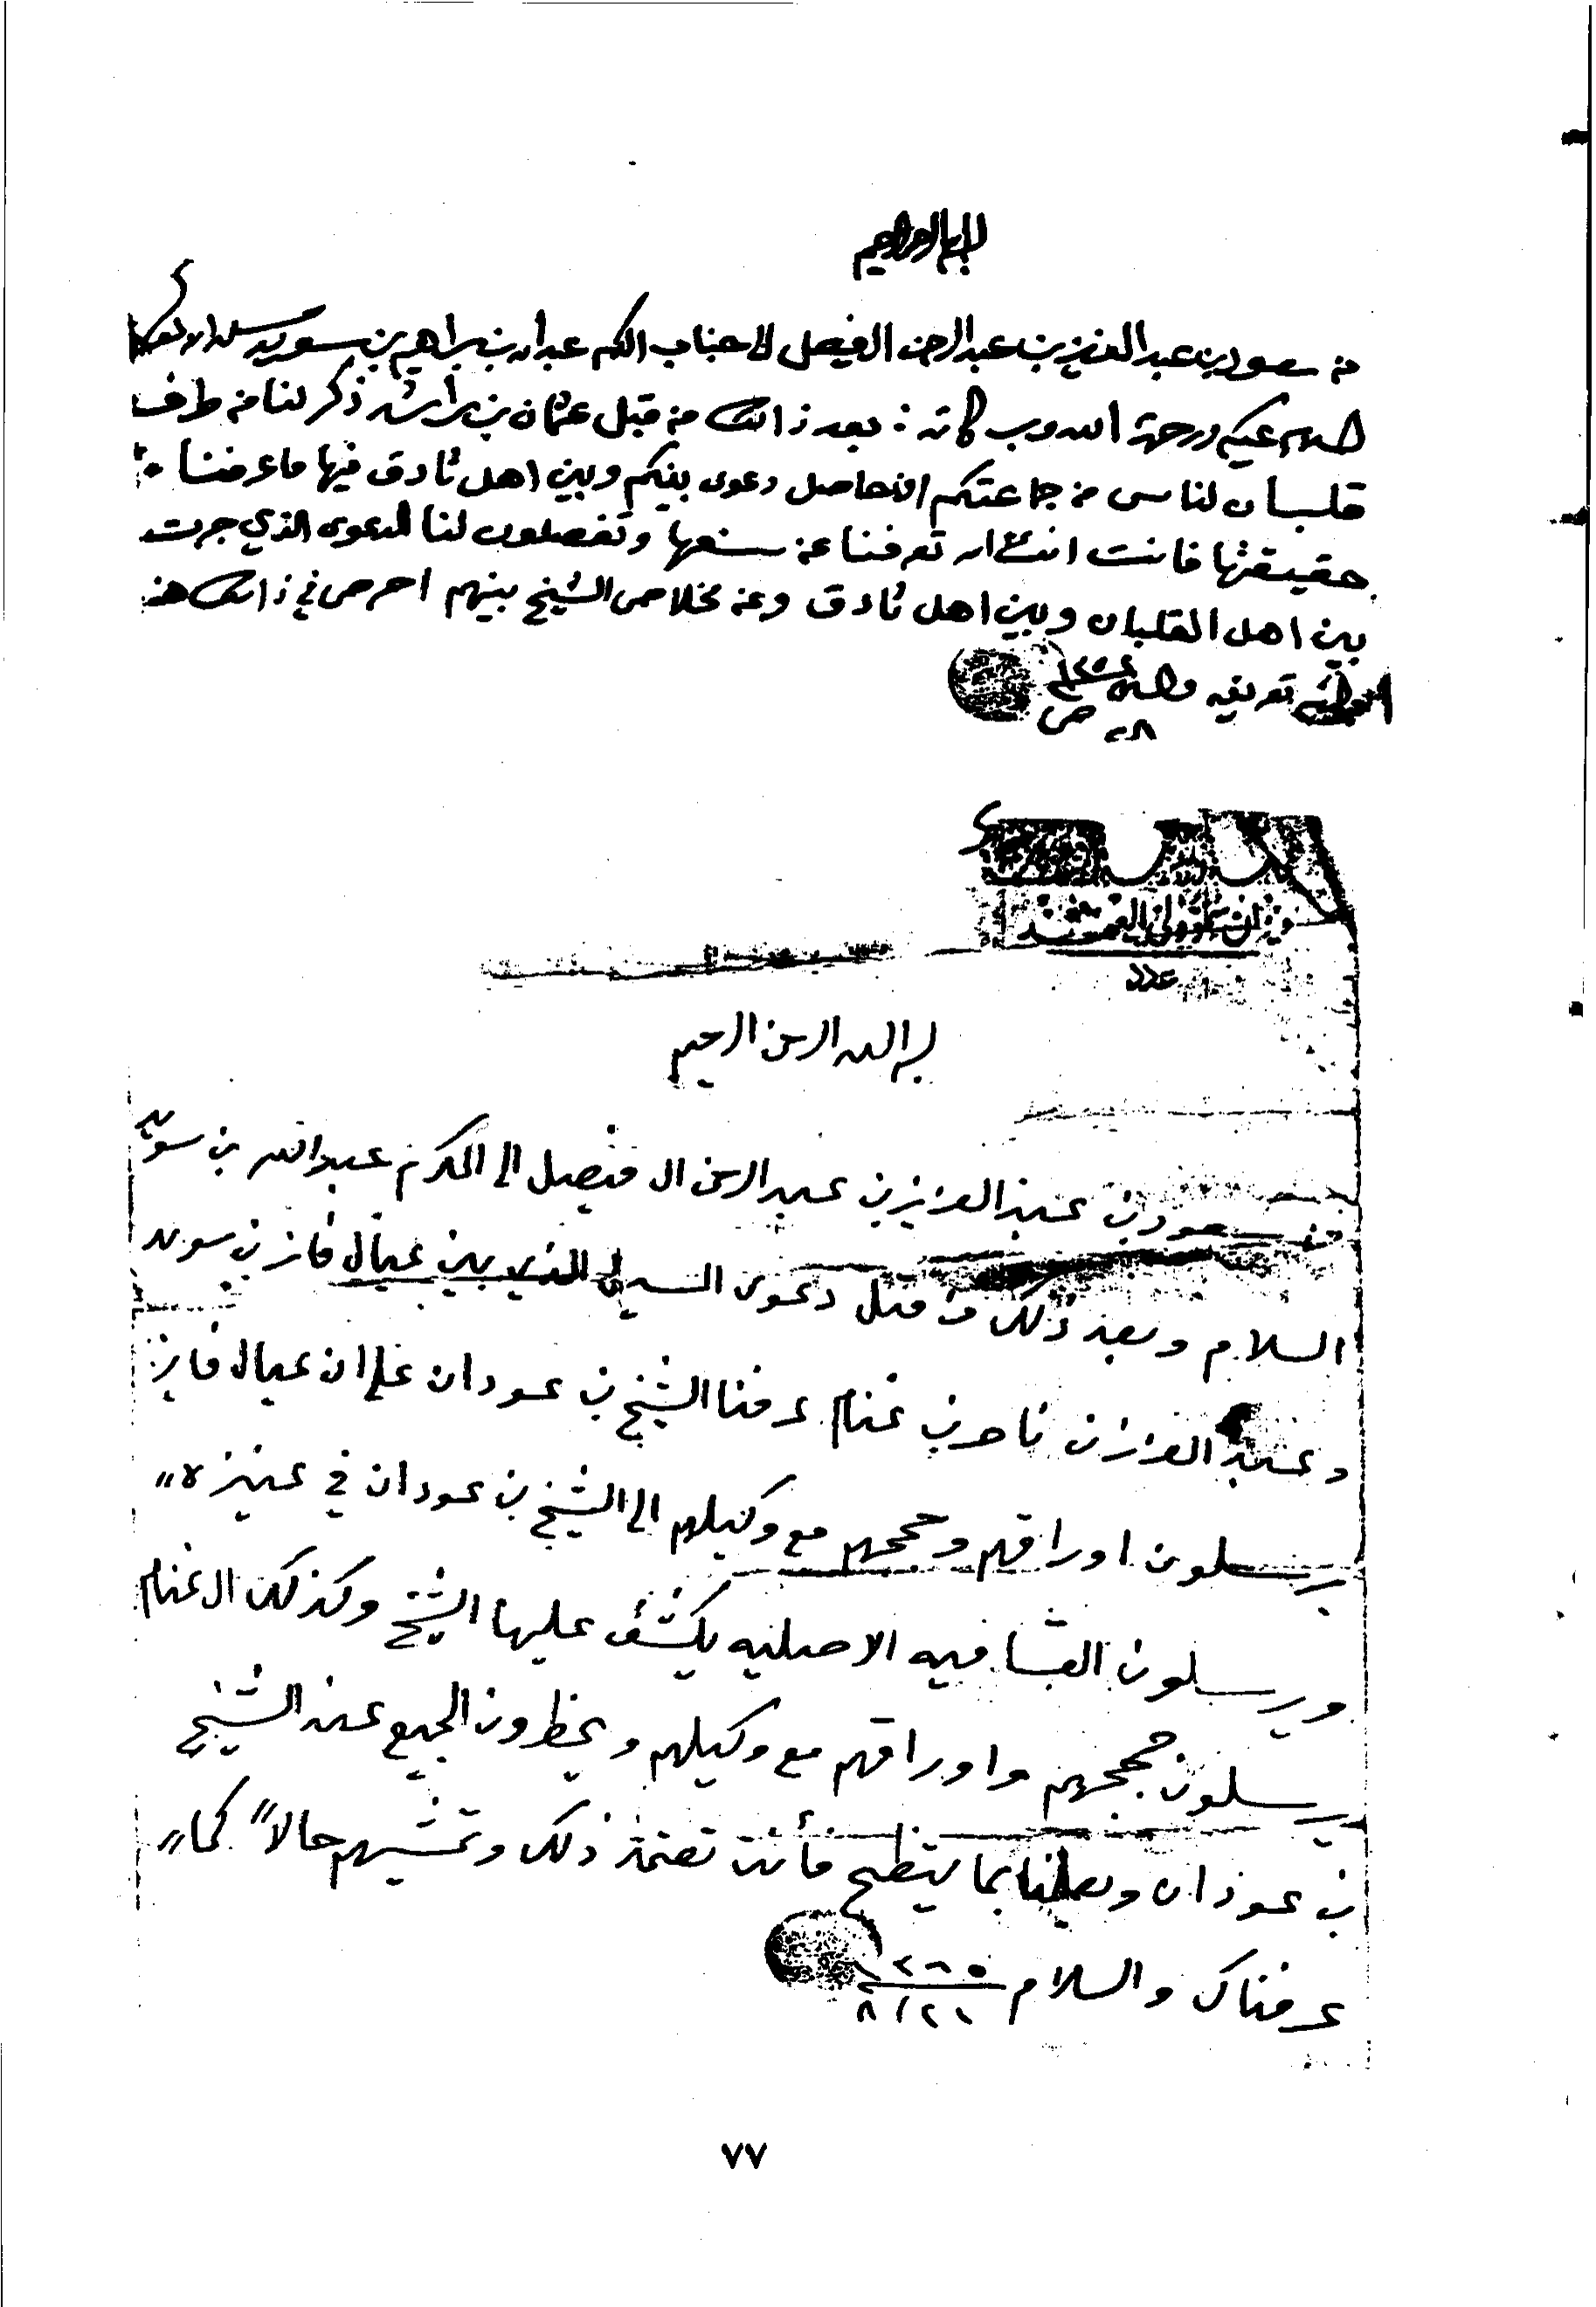 بسم الله الرحمن الرحيم
من سعود بن عبد العزيز بن عبد الرحمن الفيصل الى جناب المكرم عبد الله بن براهيم بن سويد سلمه الله
السلام عليكم ورحمة الله وبركاته : بعد ذالك من قبل عثمان بن راشد ذكر لنا من طرف
قلبان لناس من جماعتكم الآن حاصل دعوى بينكم وبين اهل ثادق فيها ما عرفنا
حقيقتها فانت انشاءالله تعرفنا عن سنعها وتفصلون لنا الدعوى الذي جرت
بين اهل القلبان وبين اهل ثادق وعن خلاص الشيخ بينهم احرص في ذالك هذا
تعريفه والسلام
٢٨ ص
عدد
بسم الله الرحمن الرحيم
من سعود بن عبد العزيز بن عبد الرحمن ال فيصل الى المكرم عبد الله بن سويد
السلام وبعد ذلك من قبل دعوى السيل الذي بين عيال فايز بن سويد
وعبد العزيز بن ناصر بن غنام عرفنا الشيخ بن عودان على ان عيال فايز
يرسلون اوراقهم وحججهم مع وكيلهم الى الشيخ بن عودان في عنيزه "
ويرسلون الشافيه الاصليه يكشف عليها الشيخ وكذلك ال غنام
يرسلون حججهم واوراقهم مع وكيلهم ويحظرون الجميع عند الشيخ
بن عودان ويعلمنا بما يتظح فأنت تعتمد ذلك وتمشيهم حالاً كما "
عرفناك والسلام ٨/٢١
٧٧